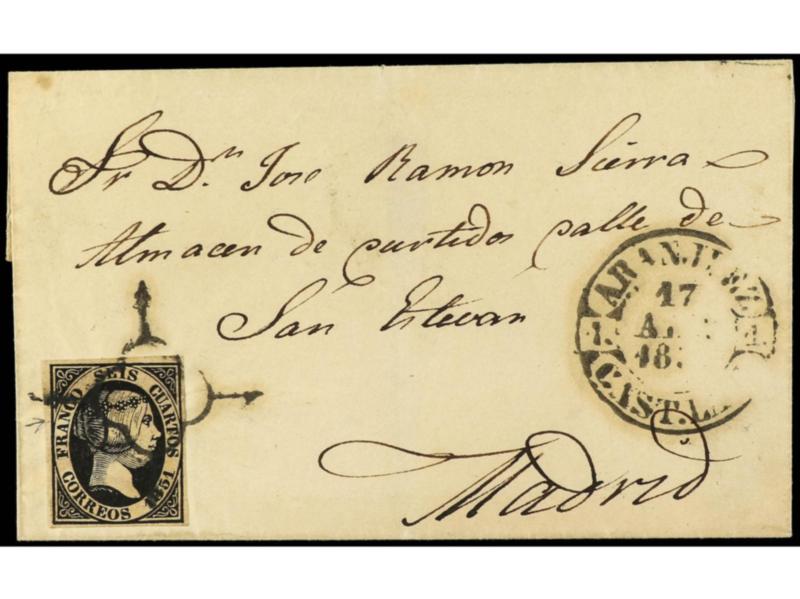 Sr Dn. Jose Ramon Sierra
Almacen de curtidos calle de
San Estevan
Madrid
ARANJUEZ
17
1
1
18
CAST.LA
FRANCO SEIS CUARTOS
CORREOS 1851